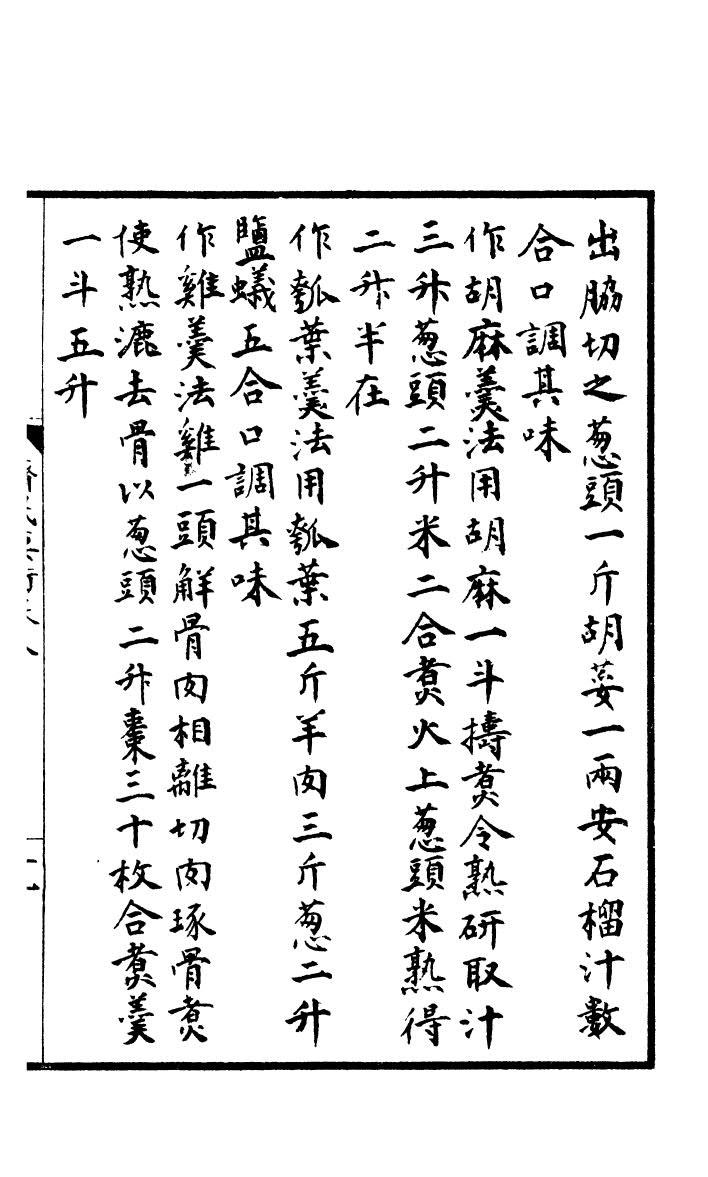 出脇切之葱頭一斤胡荽一兩安石榴汁數
合口調其味
作胡麻羹法用胡麻一斗擣煑令熟研取汁
三升葱頭二升米二合煑火上葱頭米熟得
二升半在
作瓠葉羹法用瓠葉五斤羊肉三斤葱二升
鹽蟻五合口調其味
作雞羹法雞一頭解骨肉相離切肉琢骨煑
使熟漉去骨以葱頭二升棗三十枚合煑羹
一斗五升